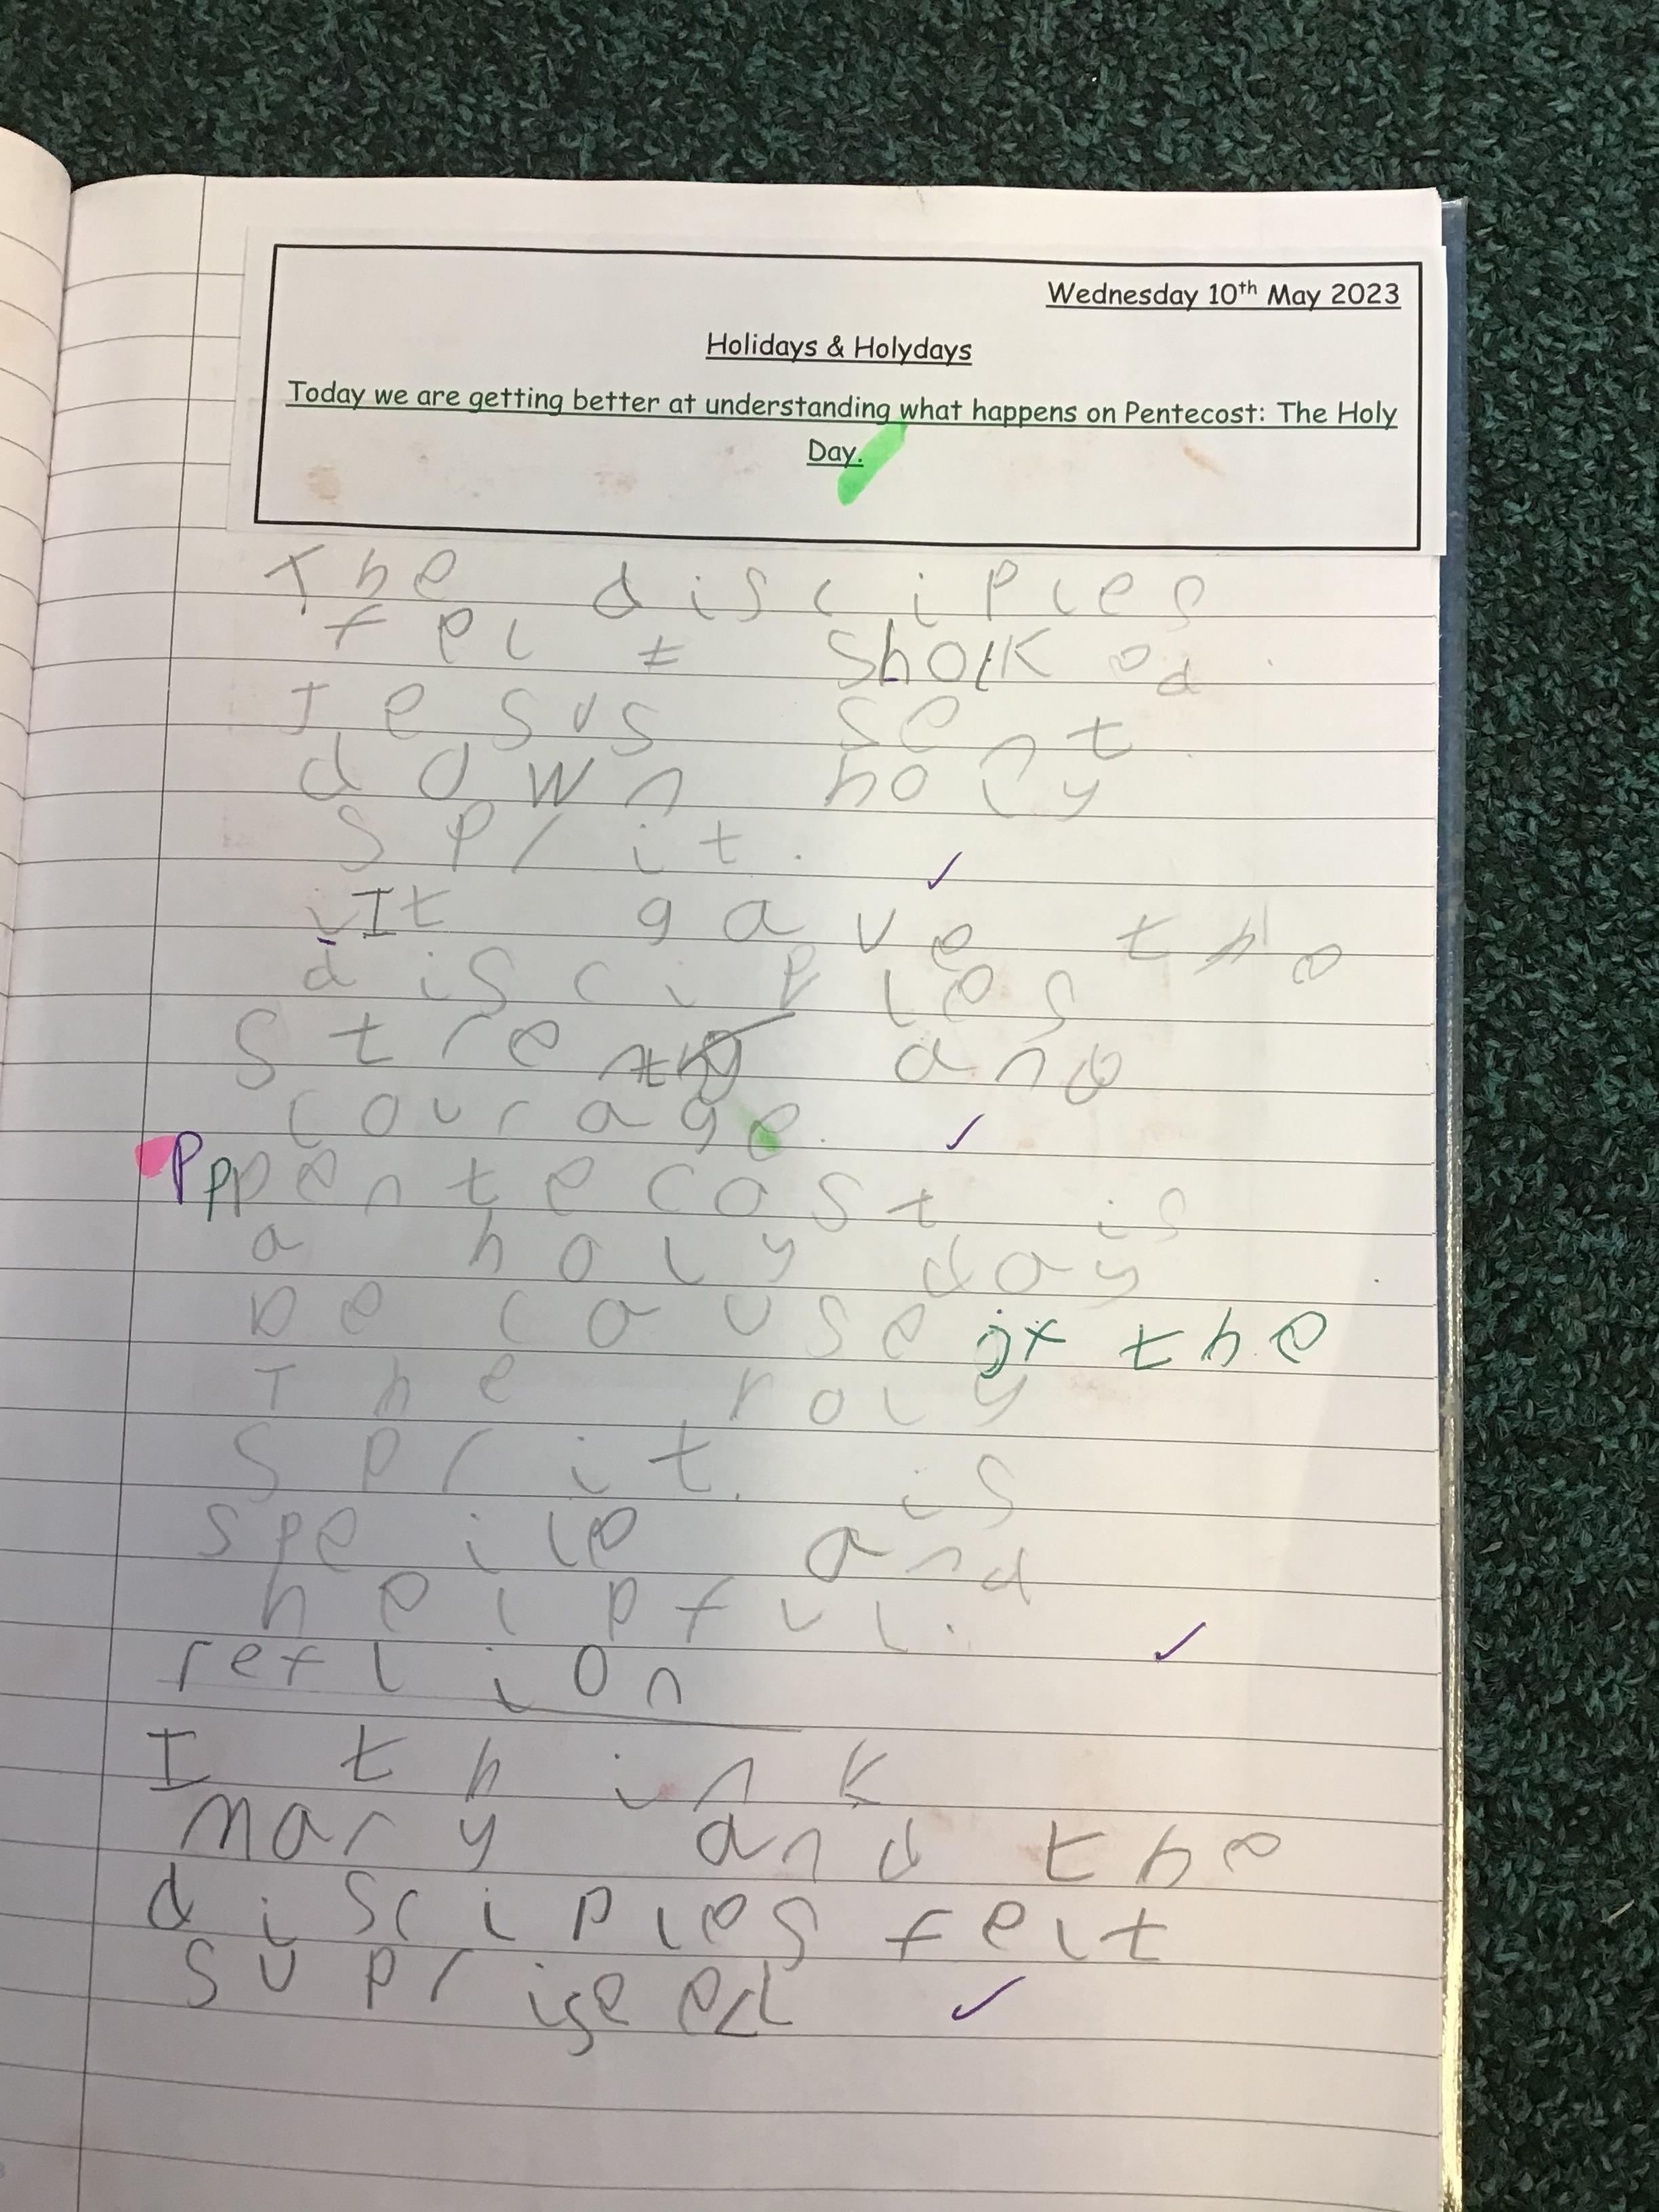 Wednesday 10th May 2023
Holidays & Holydays
Today we are getting better at understanding what happens on Pentecost: The Holy
Day.
The disciples
felt shock od
Jesus sent
down holy
sprit.
It gave the
disciples
strenth and
courage.
Pppentecost is
a holy day
be cause it the
The holy
sprit. is
speile and
helpful.
reflion
I think
mary and the
disciples felt
suprised